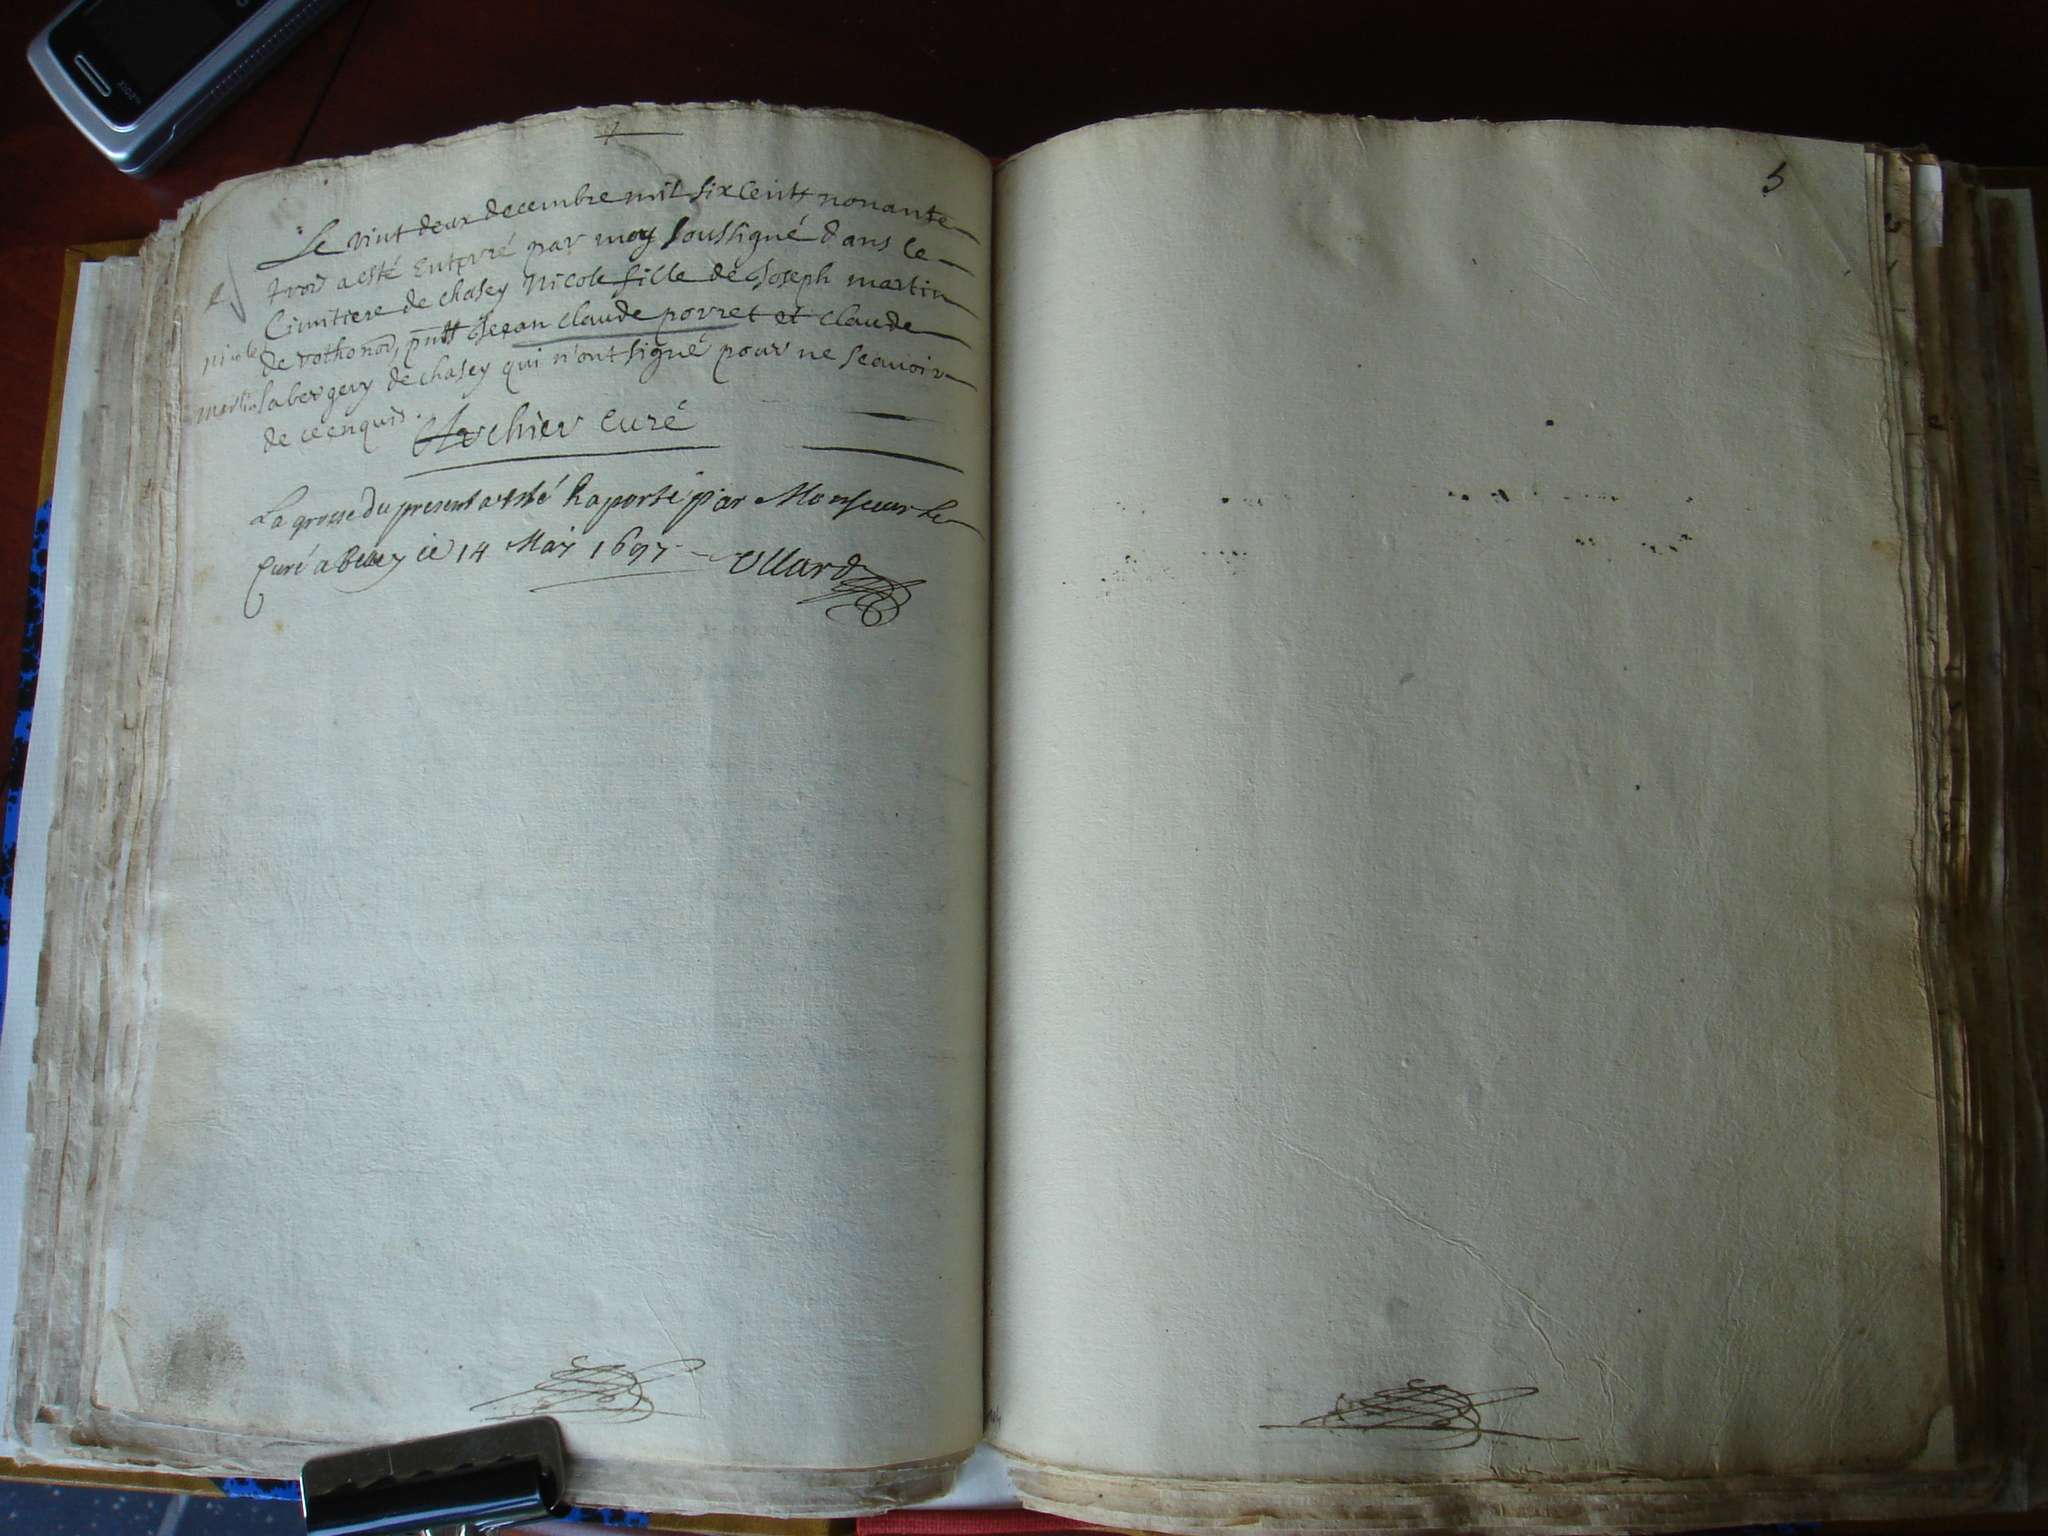 Le vint deux decembre mil six centt nonante
trois a esté Enterré par moy soussigné dans le
Cimitiere de chasey Nicole fille de Joseph martin
de rothonod, pntt Jean claude porret et claude
la bergery de chasey qui n'ont signé pour ne scavoir
de ce enquis. Archier curé
Nicole
martin
La grosse du present a esté Raporté par Monsieur le
Curé a Belley ce 14 May 1697 Ullard
5